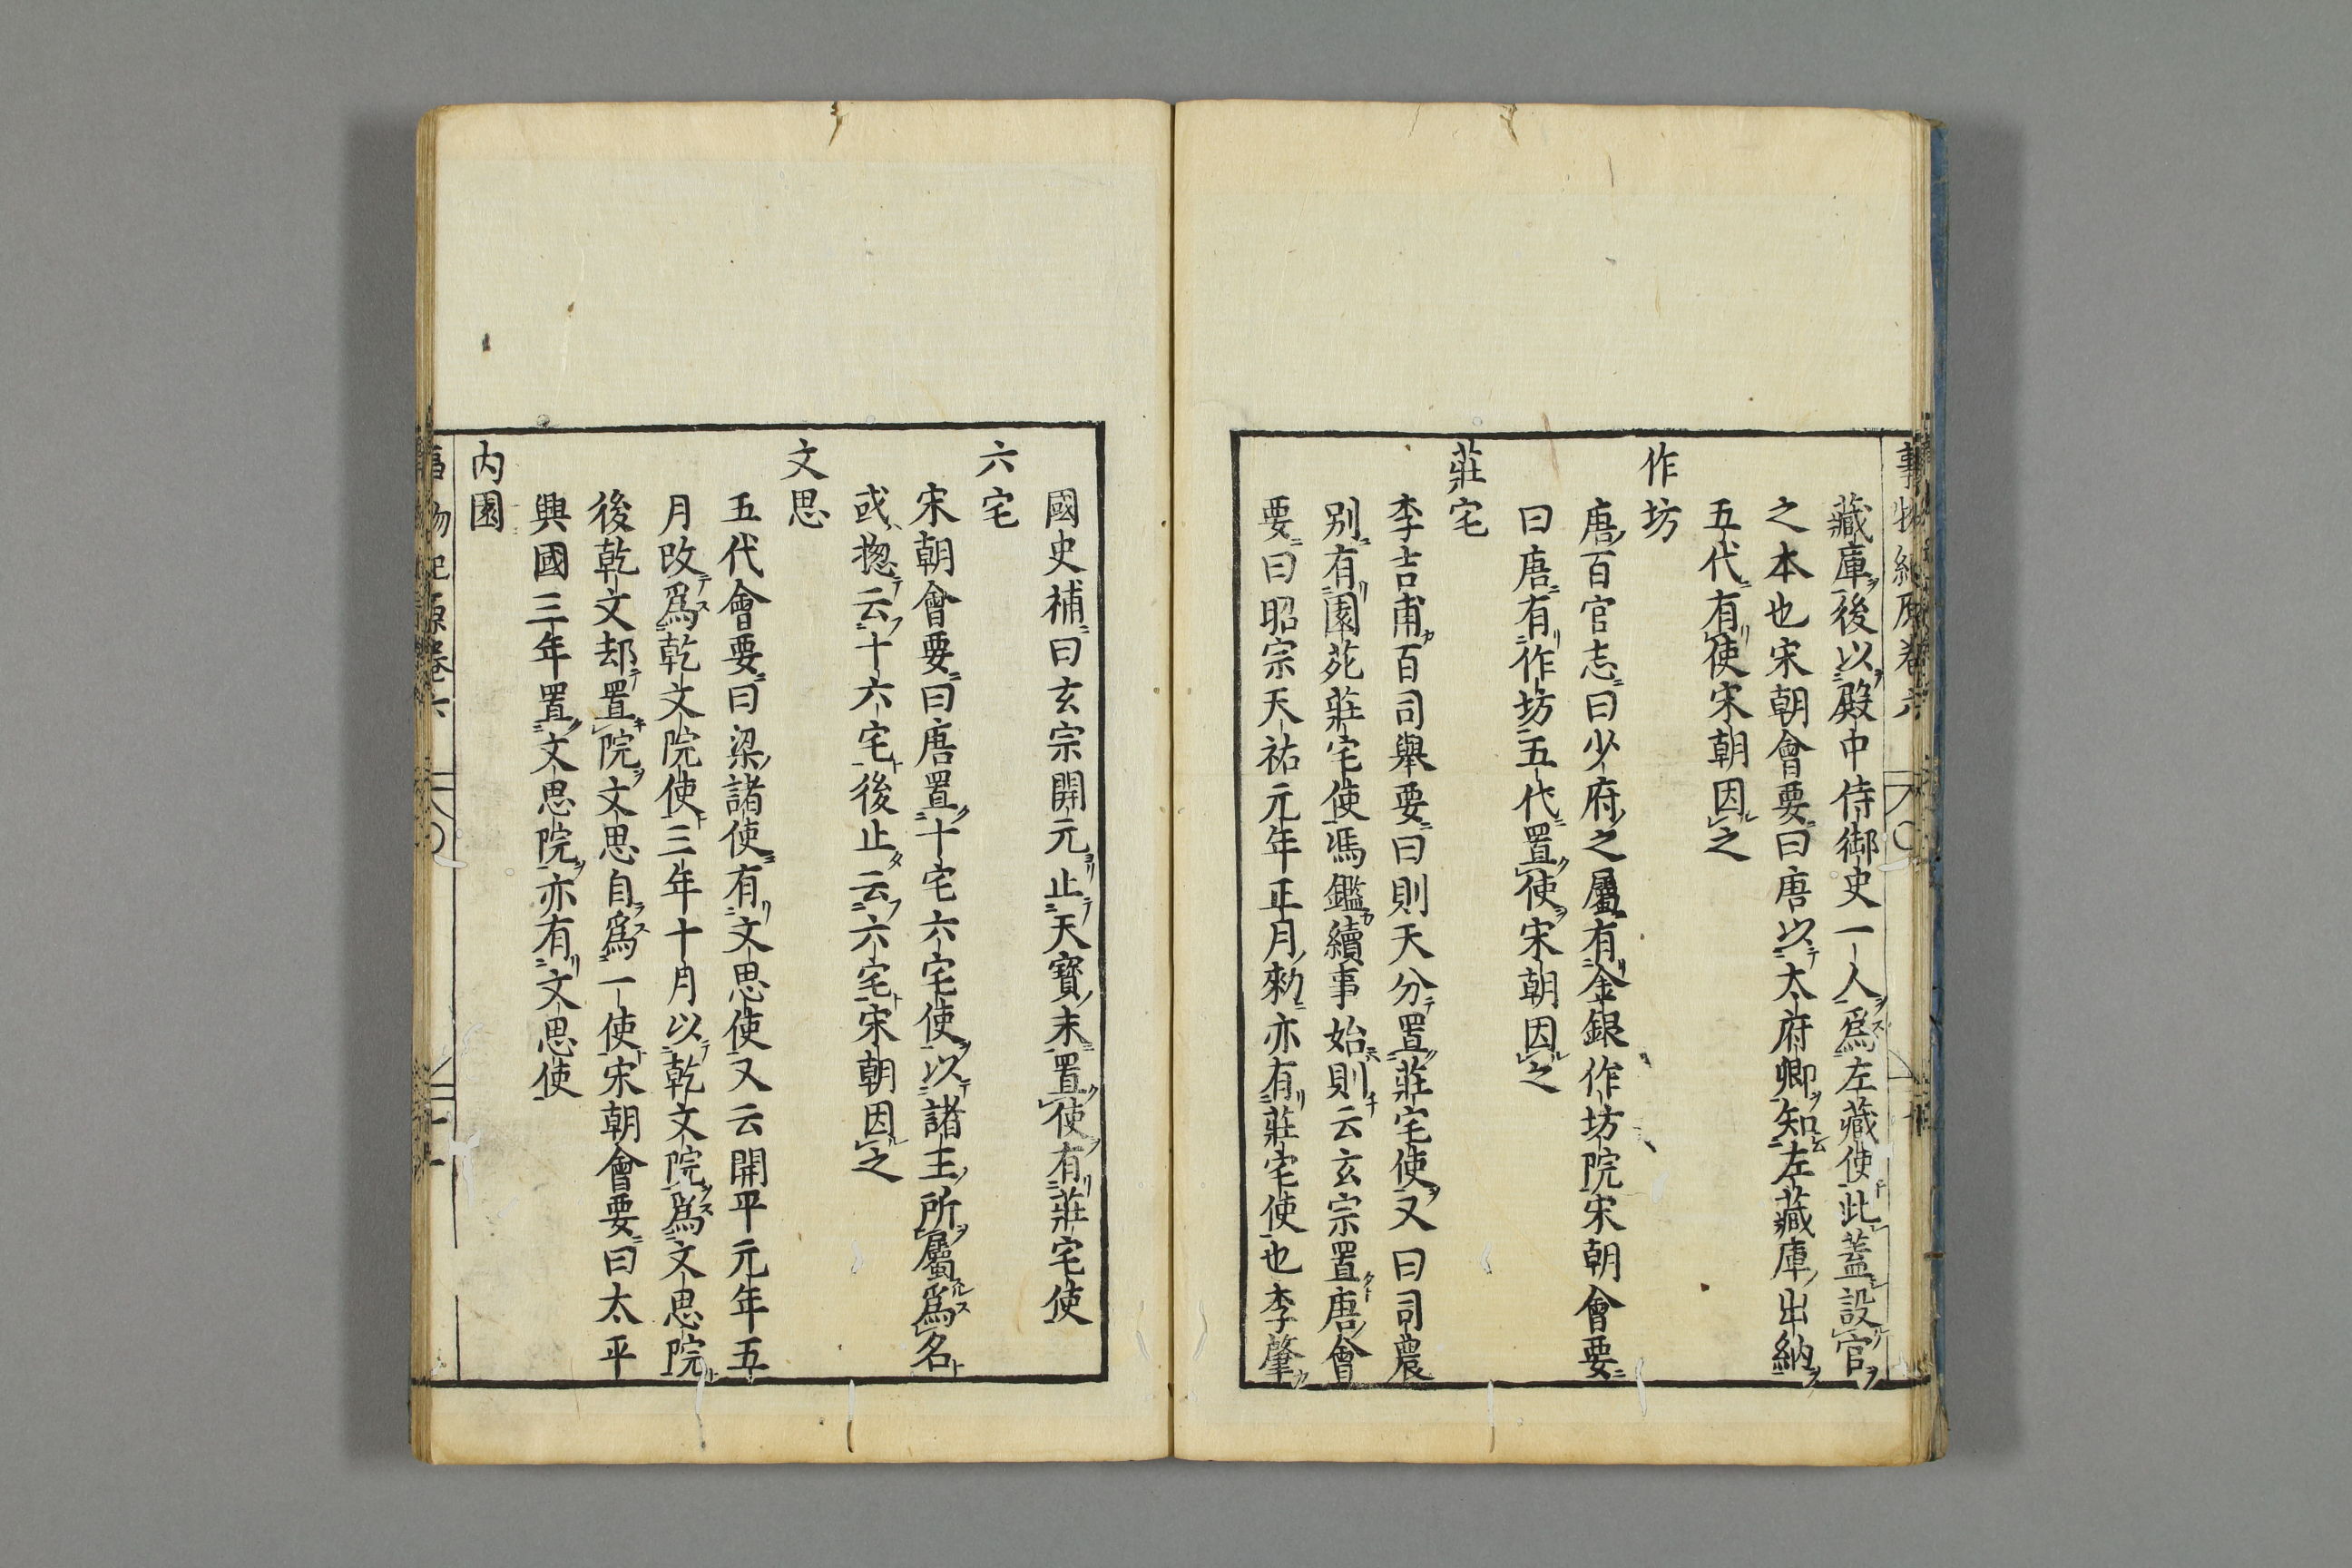 事物紀原卷六
藏庫後以殿中侍御史一人爲左藏使此蓋設官
之本也宋朝會要曰唐以太府卿知左藏庫出納
五代有使宋朝因之
作坊
唐百官志曰少府之屬有金銀作坊院宋朝會要
曰唐有作坊五代置使宋朝因之
莊宅
李吉甫百司舉要曰則天分置莊宅使又曰司農
別有園苑莊宅使馮鑑續事始則云玄宗置唐會
要曰昭宗天祐元年正月勑亦有莊宅使也李肇
國史補曰玄宗開元止天寳末置使有莊宅使
六宅
宋朝會要曰唐置十宅六宅使以諸王所屬爲名
或揔云十六宅後止云六宅宋朝因之
文思
五代會要曰梁諸使有文思使又云開平元年五
月改爲乾文院使三年十月以乾文院爲文思院
後乾文却置院文思自爲一使宋朝會要曰太平
興國三年置文思院亦有文思使
内園
事物紀原卷六